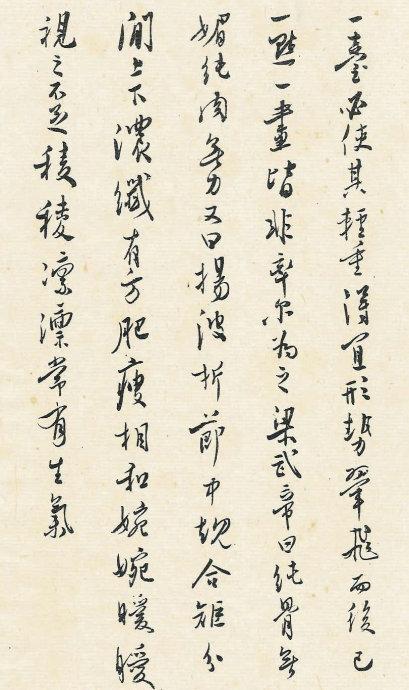 一必使其輕重得宜形勢翬而後已
一點一畫皆非率尔為之梁武帝曰純骨無
媚純肉無力又曰揚波折節中規合矩分
閒上下濃纖有方肥瘦相和婉婉曖曖
視之不足稜稜凛凛常有生氣